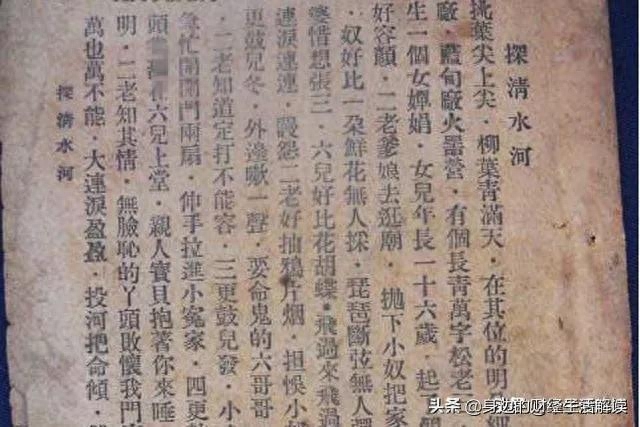 探清水河
桃葉尖上尖．柳葉青滿天．在其位的明
廠．藍甸廠火器營．有個長青萬字松老
生一個女嬋娟．女兒年長一十六歲．起
好容顏．二老爹娘去逛廟．拋下小奴把家
．奴好比一朵鮮花無人採．琵琶斷弦無人彈
婆惜想張三．六兒好比花胡蝶．飛過來飛過
連淚連連．怨二老好抽鴉片烟．担悞小
更鼓兒冬．外邊嗽一聲．要命鬼的六哥哥
．二老知道定打不能容．三更鼓兒發．小
急忙開開門兩扇．伸手拉進小冤家．四更
頭 在六兒上堂．親人寶貝抱著你來睡
明．二老知其情．無臉恥的丫頭敗懷我門
萬也萬不能．大連淚盈盈．投河把命傾．
探清水河
头条 @身边的财经生活解读